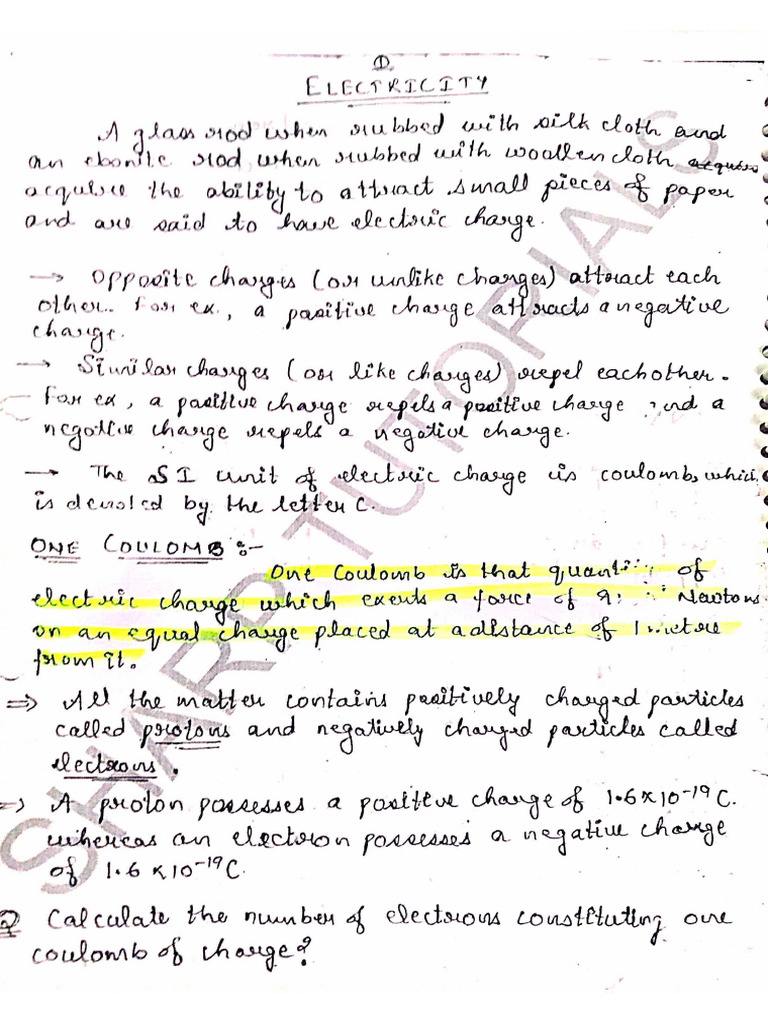 ①.
ELECTRICITY
A glass rod when rubbed with silk cloth and
an ebonite rod when rubbed with woollen cloth
acquire the ability to attract small pieces of paper
and are said to have electric charge.
→ Opposite charges (or unlike charges) attract each
other. For ex., a positive charge attracts a negative
charge.
→ Similar charges (or like charges) repel each other.
For ex, a positive charge repels a positive charge and a
negative charge repels a negative charge.
→ The SI unit of electric charge is coulomb, which
is denoted by the letter C.
ONE COULOMB :-
One Coulomb is that quantity of
electric charge which exerts a force of Newtons
on an equal charge placed at a distance of 1 metre
from it.
⇒ All the matter contains positively charged particles
called protons and negatively charged particles called
electrons.
⇒ A proton possesses a positive charge of 1.6×10⁻¹⁹C.
whereas an electron possesses a negative charge
of 1.6×10⁻¹⁹C.
Q Calculate the number of electrons constituting one
coulomb of charge?
SHARP TUTORIALS